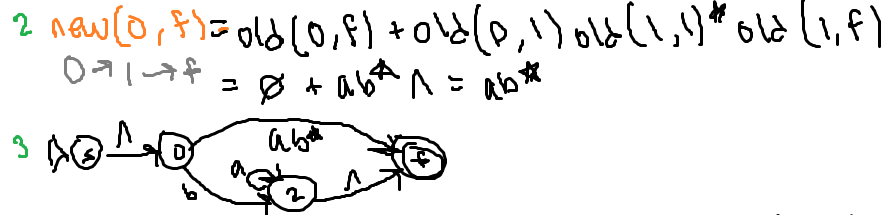 2 new(0,f)= old(0,f) + old(0,1) old(1,1)* old(1,f)
0→1→f = ∅ + ab* Λ = ab*
3 s Λ 0 ab* f
b a 2 Λ